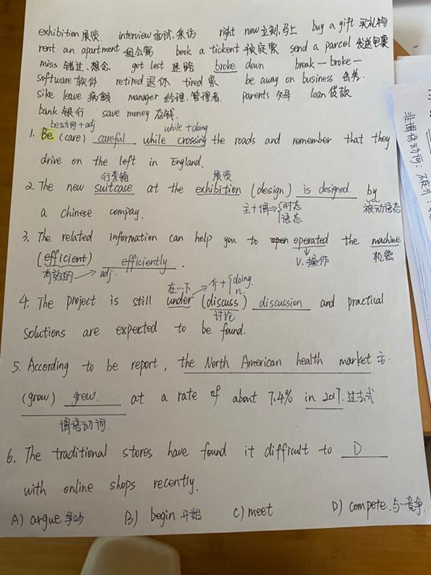 exhibition 展览 interview 面试,采访 right now 立刻,马上 buy a gift 买礼物
rent an apartment 租公寓 book a tickent 预定票 send a parcel 发送包裹
miss 错过,想念 get lost 迷路 broke down break — broke —
software 软件 retired 退休 tired 累 be away on business 出差
sike leave 病假 manager 经理,管理者 parents 父母 loan 贷款
bank 银行 save money 存钱
be动词+adj while+doing
1. Be (care) careful while crossing the roads and remember that they
drive on the left in England.
行李箱 展览
2. The new suitcase at the exhibition (design) is designed by
主+谓 时态 语态 被动语态
a chinese compay.
3. The related information can help you to open operated the machine
v. 操作 机器
(efficient) efficiently.
有效的 adj.
在…下 介+ doing n.
4. The project is still under (discuss) discussion and practical
讨论
solutions are expected to be found.
5. According to be report, the North American health market 主
(grow) grew at a rate of about 7.4% in 2017. 过去式
谓语动词
6. The traditional stores have found it difficult to D
with online shops recently.
A) argue 争吵 B) begin 开始 C) meet D) compete 与…竞争